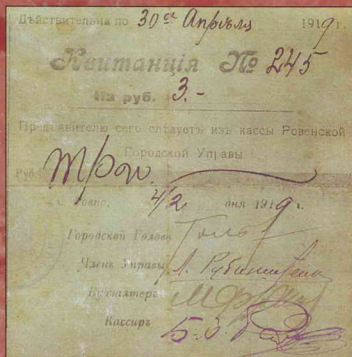 Дѣйствительна по 30го Апрѣля 1919 г.
Квитанція № 245
На руб. 3.-
Предъявителю сего слѣдуетъ изъ кассы Ровенской
Городской Управы
Руб. Три
г. Ровно, 4/2 дня 1919 г.
Городской Голова
Членъ Управы
Бухгалтеръ
Кассиръ